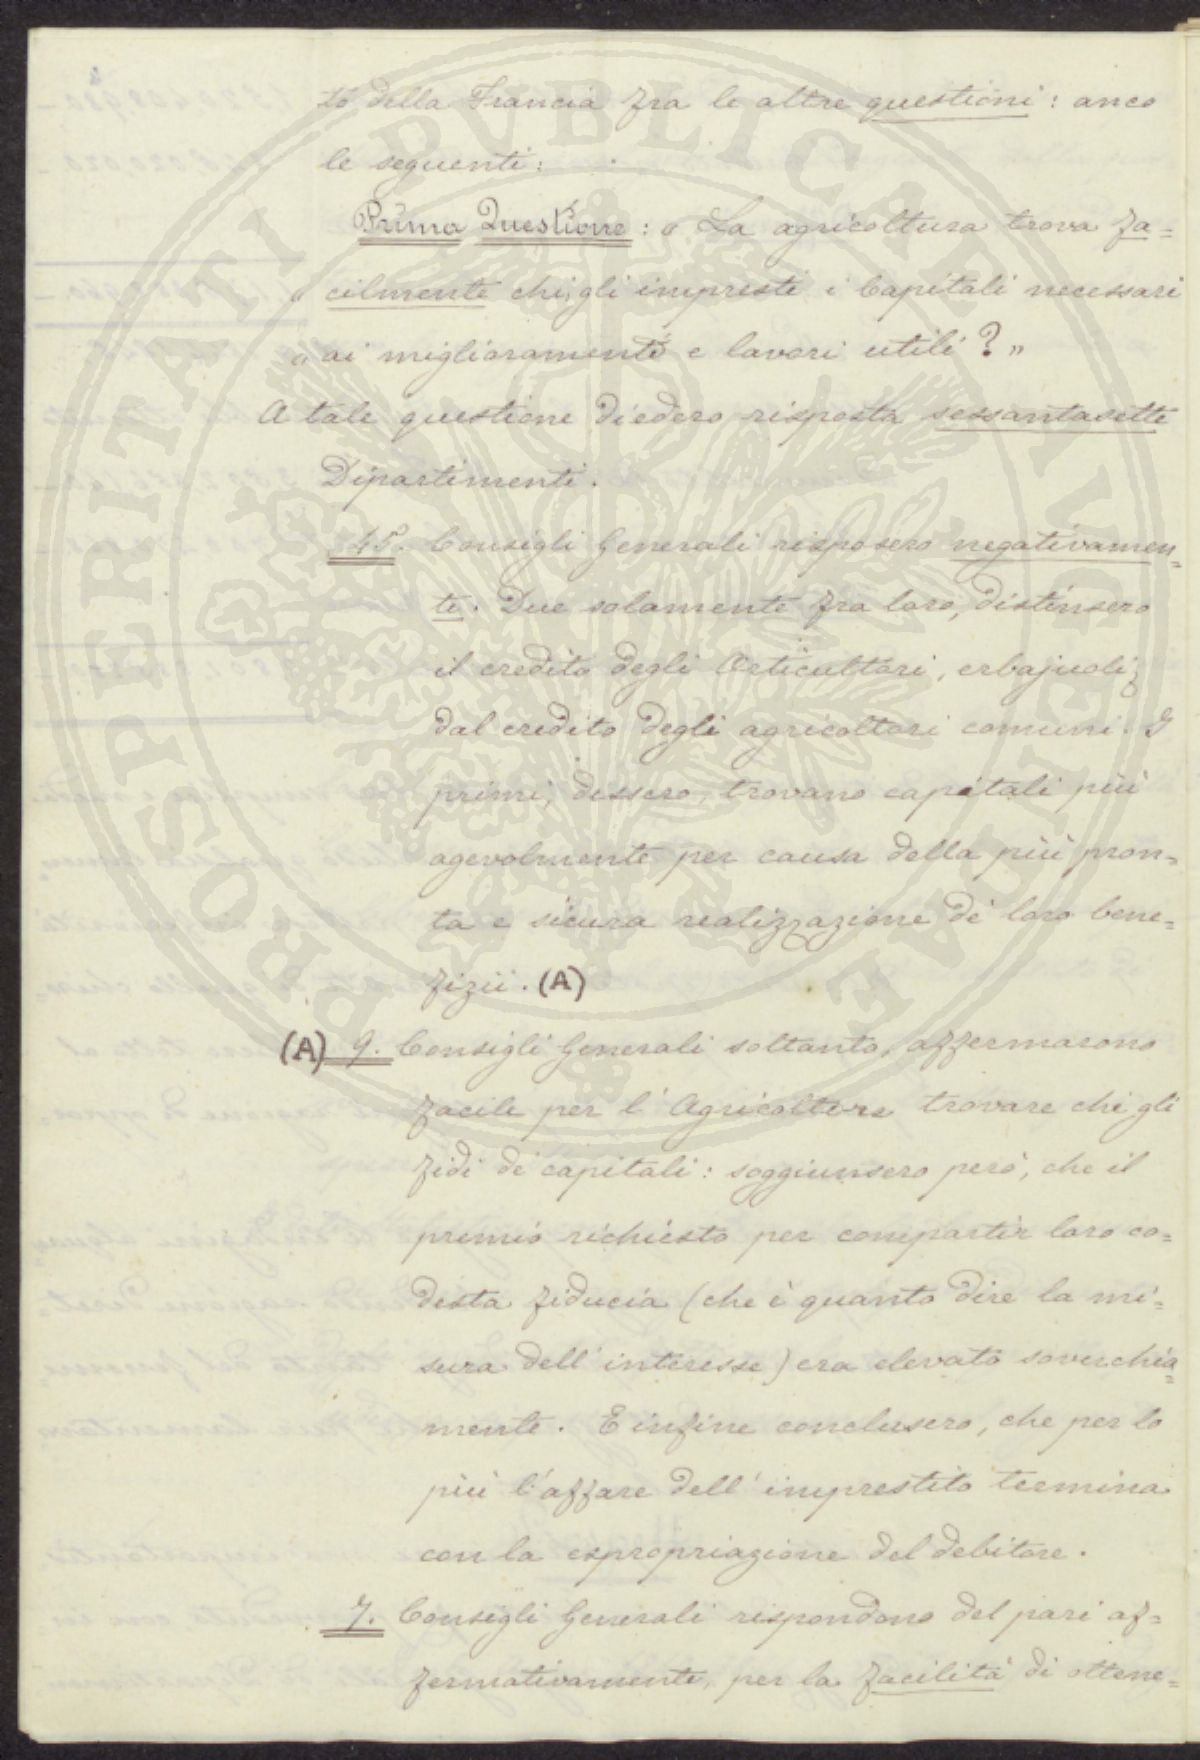 tò della Francia fra le altre questioni: anco
le seguenti:
Prima Questione: " La agricoltura trova fa=
" cilmente chi gli impresti i Capitali necessari
" ai miglioramenti e lavori utili? "
A tale questione diedero risposta sessantasette
Dipartimenti.
45. Consigli Generali risposero negativamen=
te. Due solamente fra loro, distinsero
il credito degli Orticultori, erbajuoli;
dal credito degli agricoltori comuni. I
primi, dissero, trovano capitali più
agevolmente per causa della più pron=
ta e sicura realizzazione de' loro bene=
fizii. (A)
(A) 9. Consigli Generali soltanto, affermarono
facile per l'Agricoltore trovare chi gli
fidi de' capitali: soggiunsero però, che il
premio richiesto per compartir loro co=
desta fiducia (che è quanto dire la mi=
sura dell'interesse) era elevato soverchia=
mente. E infine conclusero, che per lo
più l'affare dell'imprestito termina
con la espropriazione del debitore.
7. Consigli Generali rispondono del pari af=
fermativamente, per la facilità di ottene=
PROSPERITATI PVBLICAE AVGENDAE